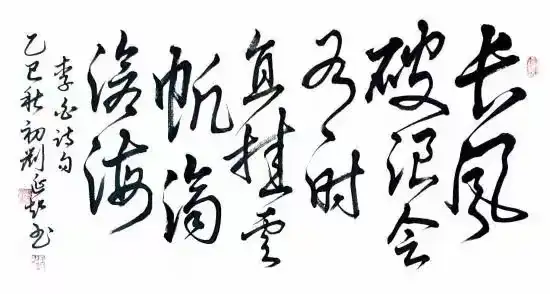 长风
破浪会
有时
直挂雲
帆济
沧海
李白诗句
乙巳秋初刘延书